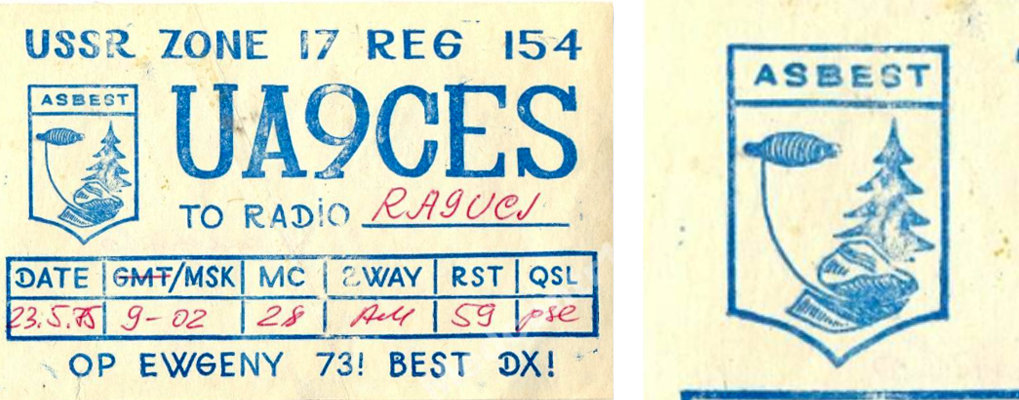 USSR ZONE 17 REG 154
ASBEST
UA9CES
TO RADIO RA9UCJ
DATE GMT/MSK MC 2WAY RST QSL
23.5.75 9-02 28 AM 59 pse
OP EWGENY 73! BEST DX!
ASBEST